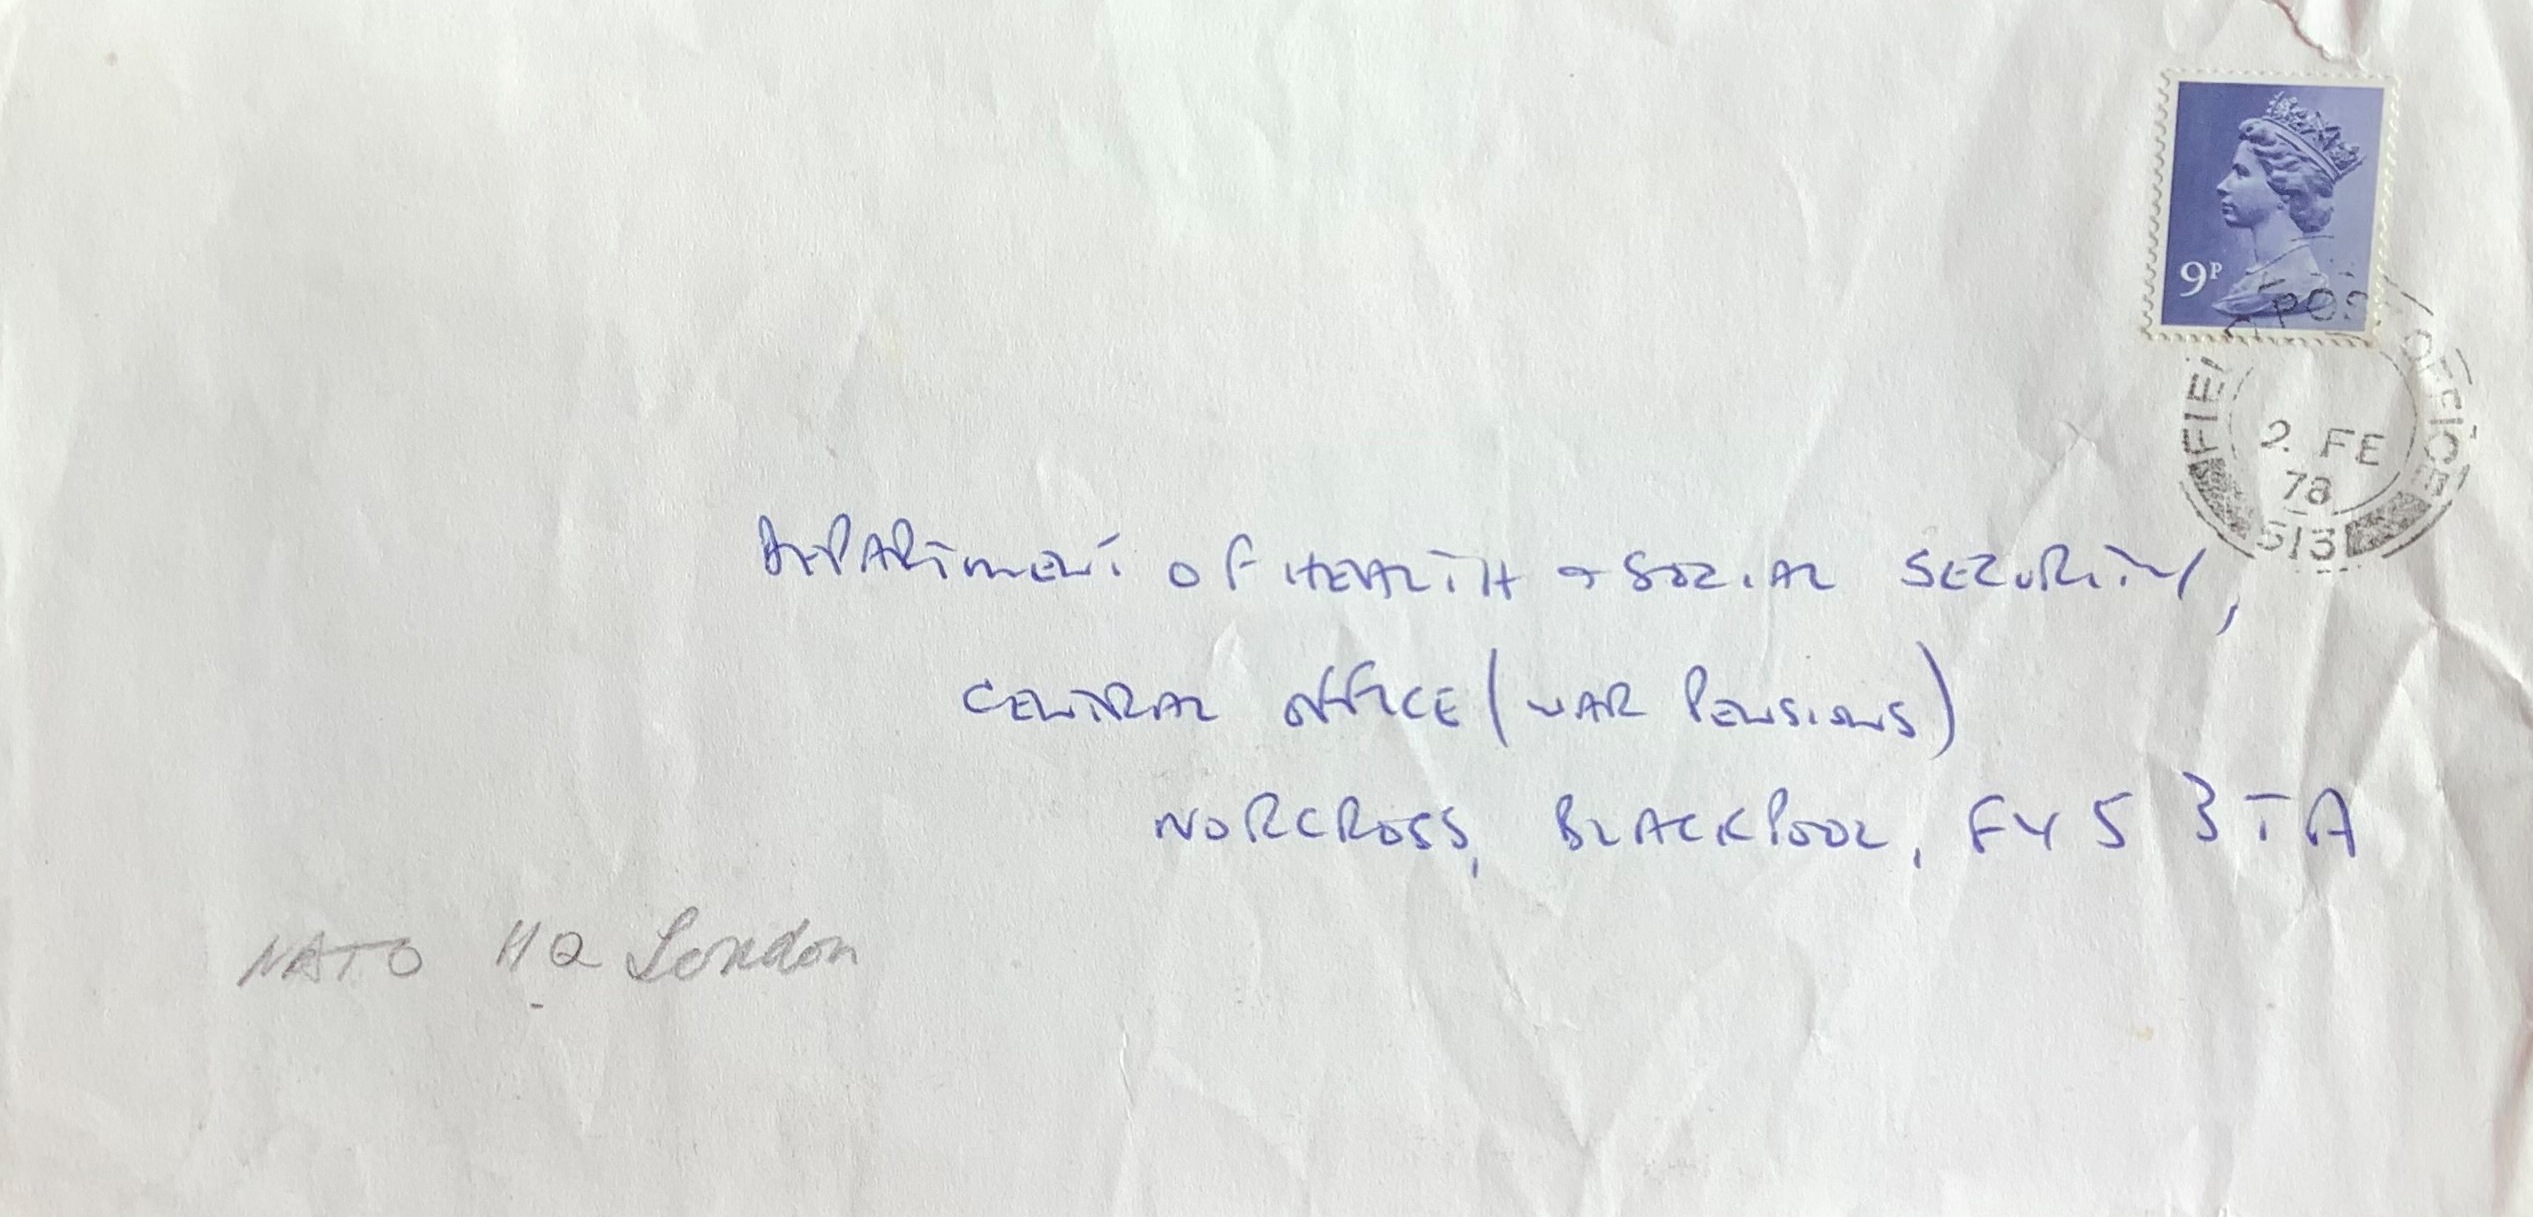 9P
FIELD POST OFFICE
2. FE
78
513
DEPARTMENT OF HEALTH & SOCIAL SECURITY,
CENTRAL OFFICE (WAR PENSIONS)
NORCROSS, BLACKPOOL, FY5 3TA
NATO HQ London